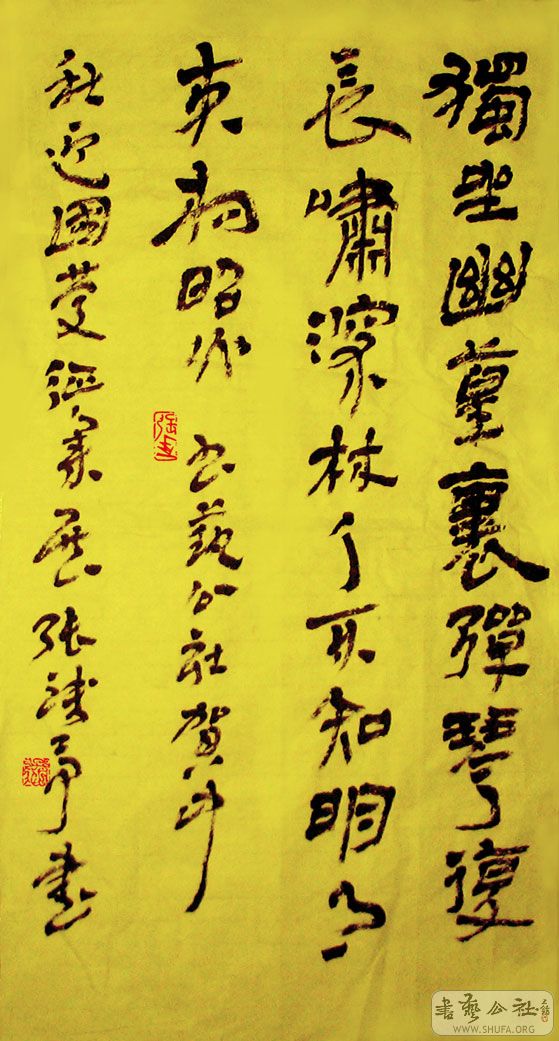 獨坐幽篁裏彈琴復
長嘯深林人不知明月
來相照 书藝公社賀中
秋迎國慶展張書
書藝公社
WWW.SHUFA.ORG